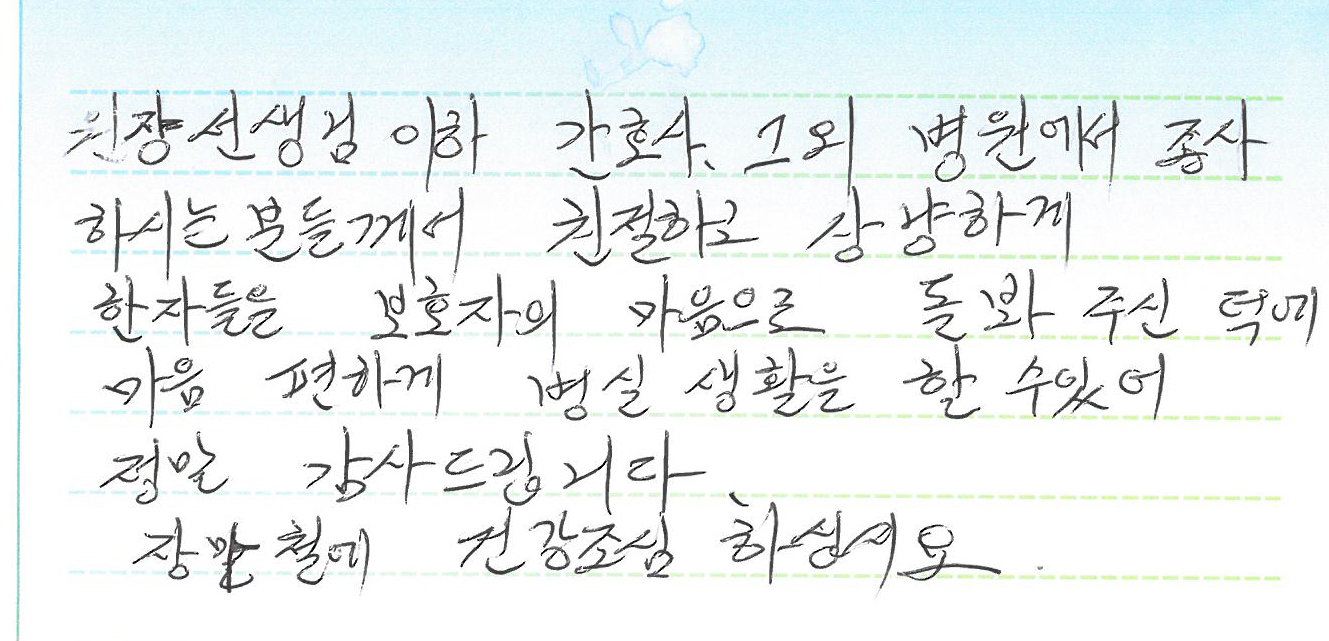 원장선생님 이하 간호사. 그외 병원에서 종사
하시는 분들께서 친절하고 상냥하게
환자들을 보호자의 마음으로 돌봐 주신 덕에
마음 편하게 병실 생활을 할 수있어
정말 감사드립니다
장말철에 건강조심 하십시요.